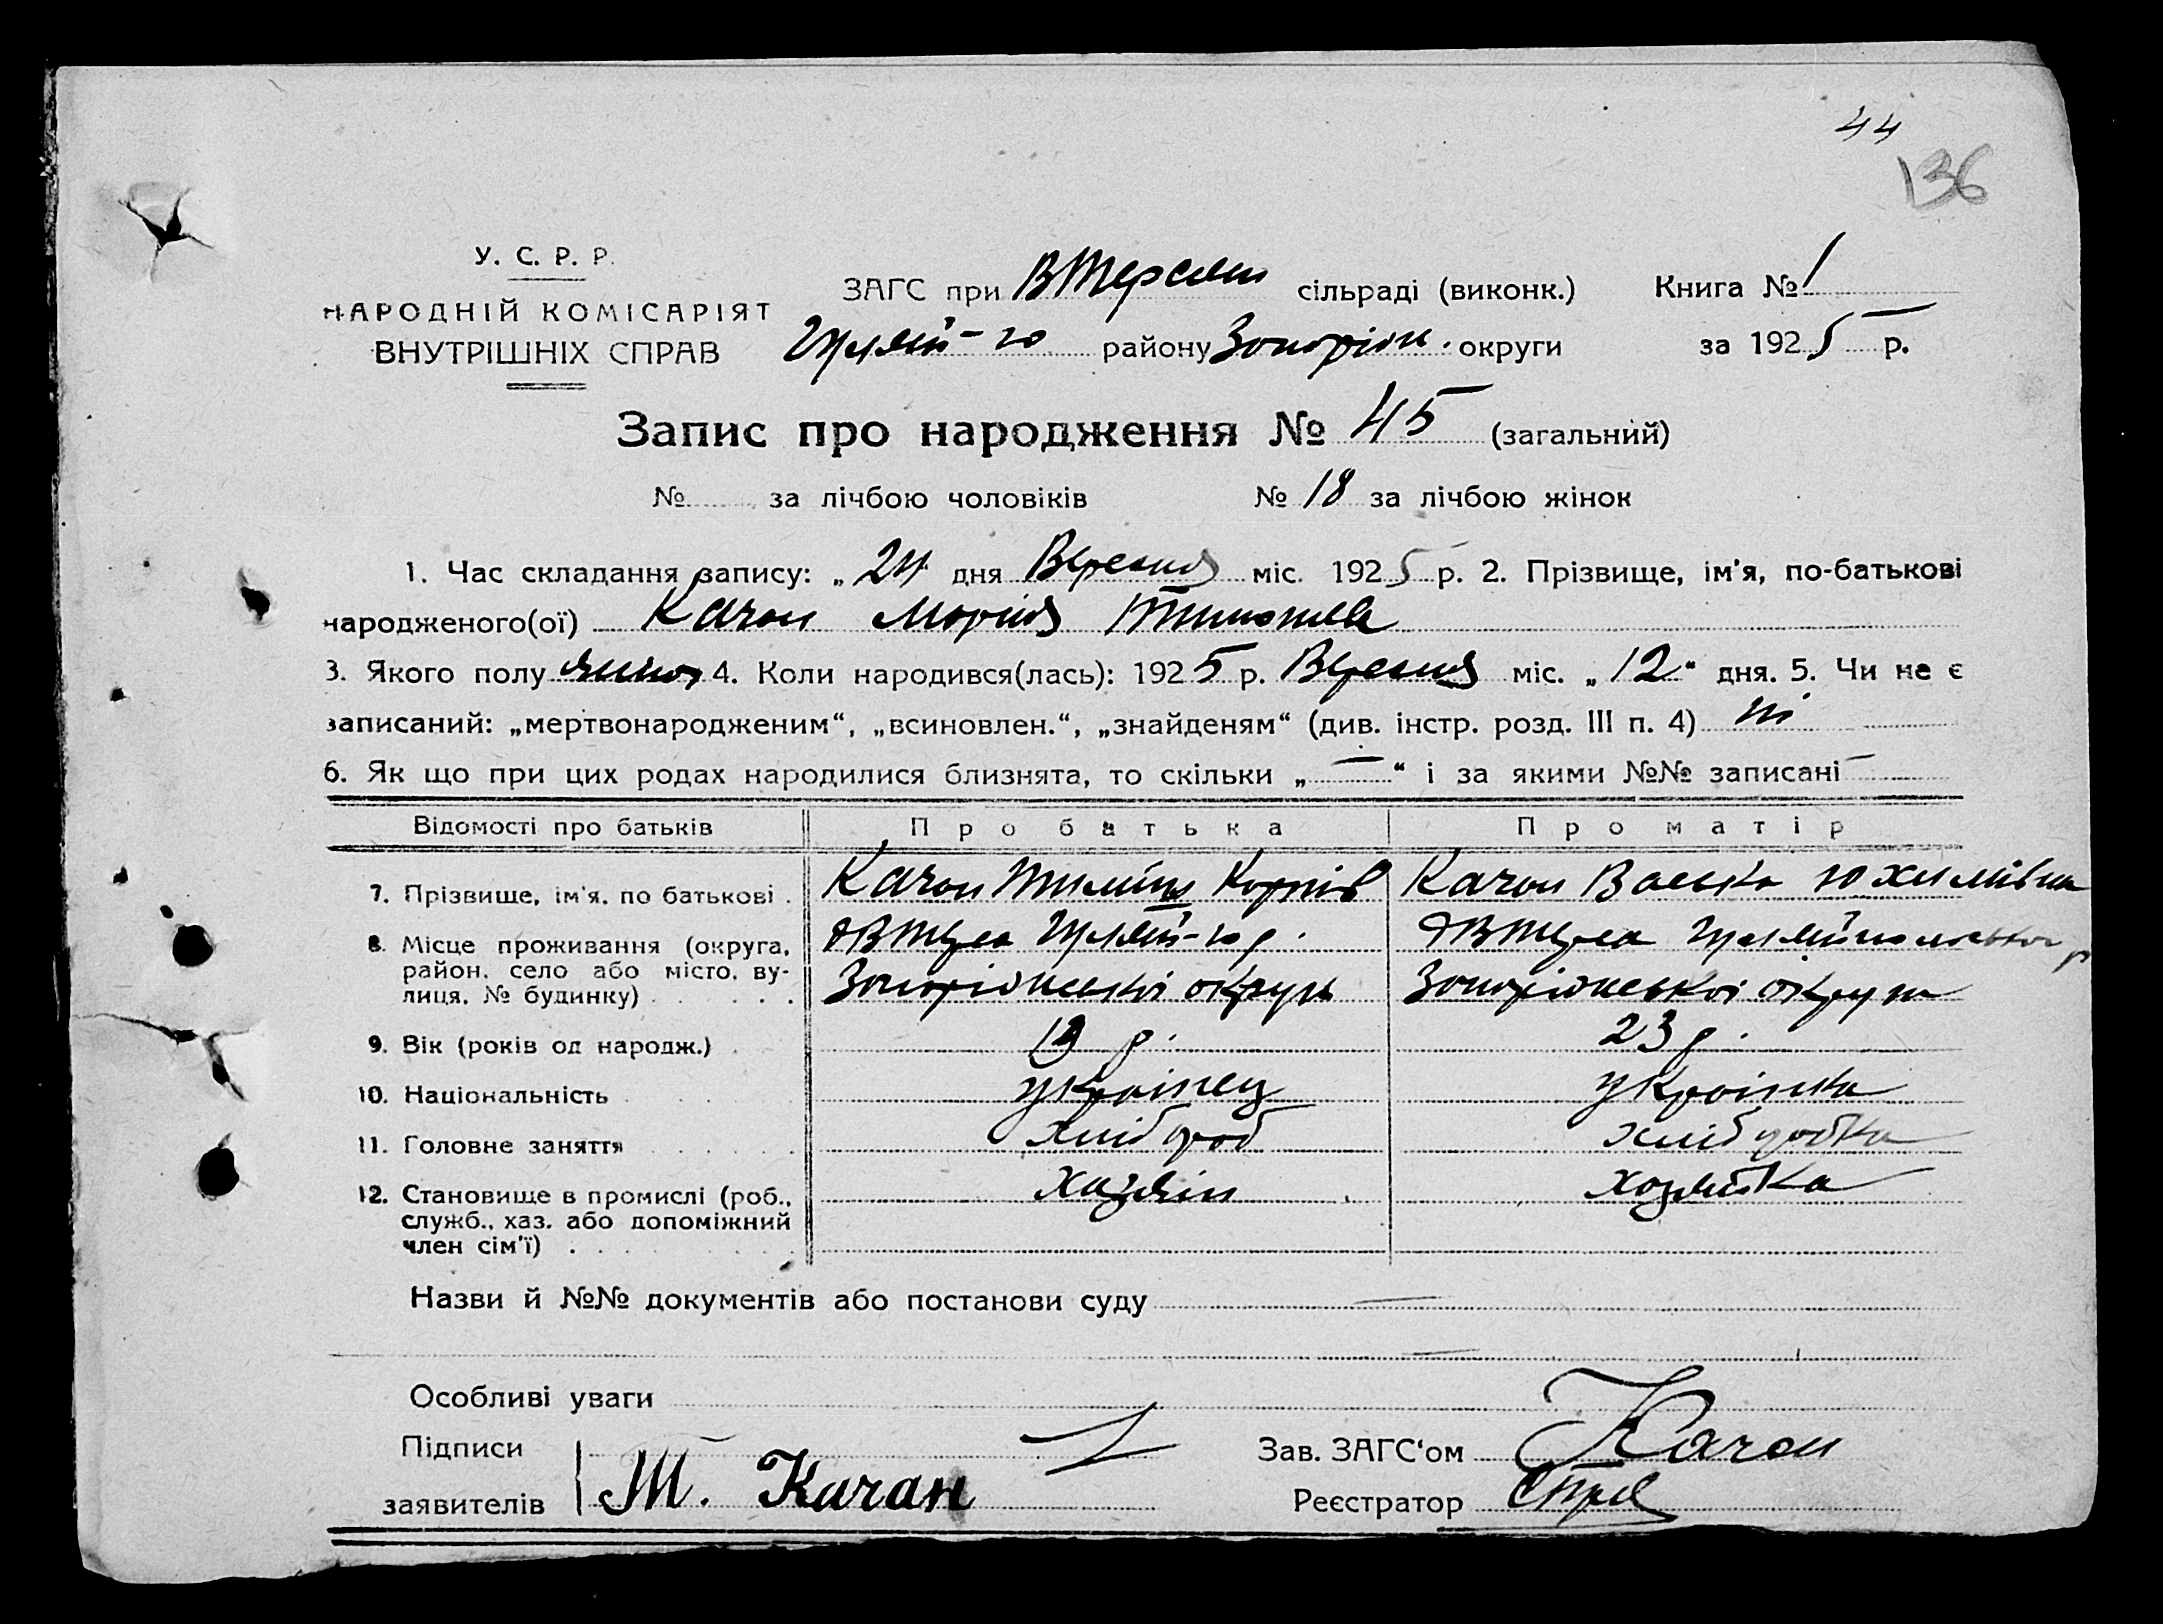 44
136
У. С. Р. Р.
НАРОДНІЙ КОМІСАРІЯТ
ВНУТРІШНІХ СПРАВ
ЗАГС при сільраді (виконк.) Книга № 1
району округи за 1925 р.
Запис про народження № 45 (загальний)
№ за лічбою чоловіків № 18 за лічбою жінок
1. Час складання запису: „ 24 дня Березня міс. 1925 р. 2. Прізвище, ім'я, по-батькові
народженого(ої) Качан Марія
3. Якого полу 4. Коли народився(лась): 1925 р. Березня міс. „ 12 “ дня. 5. Чи не є
записаний: „мертвонародженим“, „всиновлен.“, „знайденям“ (див. інстр. розд. III п. 4) ні
6. Як що при цих родах народилися близнята, то скільки „ — “ і за якими №№ записані —
Відомості про батьків Про батька Про матір
7. Прізвище, ім'я, по батькові . Качан Качан Васька Юхимівна
8. Місце проживання (округа,
район, село або місто, ву-
лиця, № будинку) Запоріжської округи Запоріжської округи
9. Вік (років од народж.) 19 р. 23 р.
10. Національність українец українка
11. Головне заняття хлібороб хліборобка
12. Становище в промислі (роб., хазяін хозяйка
служб., хаз. або допоміжний
член сім'ї)
Назви й №№ документів або постанови суду —
Особливі уваги
Підписи Зав. ЗАГС'ом Качан
заявителів Т. Качан Реєстратор